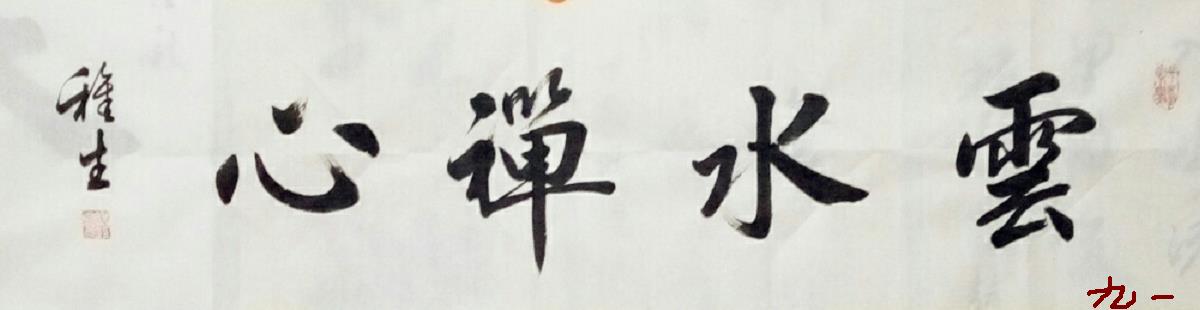 雲水禪心
稚生
九一